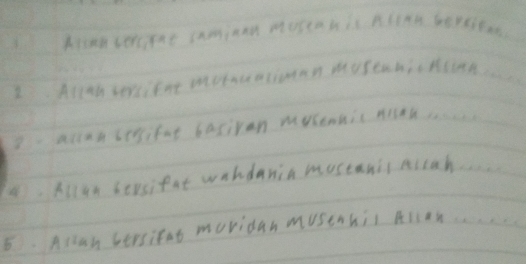 1. Allah bersifat samiaan mustahil Allah bersifat
2. Allah bersifat mutakaliman mustahil Allah.....
3. allah bersifat basiran mustahil allah......
4. Allah bersifat wahdania mustahil Allah.....
5. Allah bersifat muridan mustahil Allah......